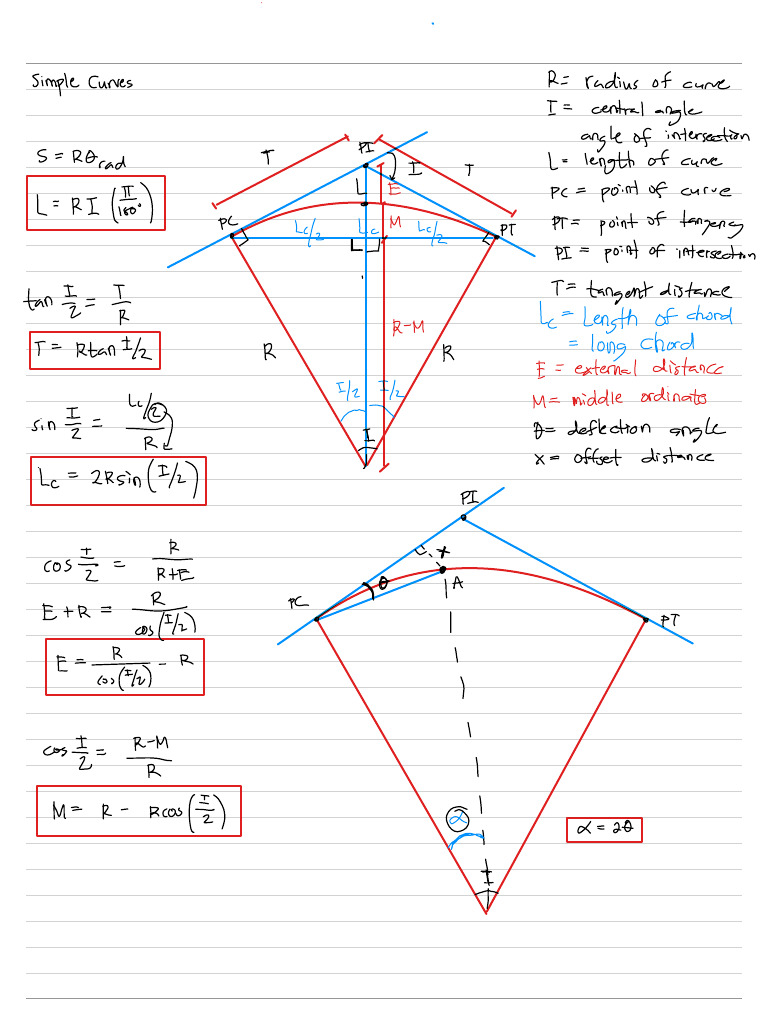 Simple Curves
S = Rθrad
L = RI (π/180°)
tan I/2 = T/R
T = Rtan I/2
sin I/2 = (Lc/2)/R
Lc = 2Rsin (I/2)
cos I/2 = R/(R+E)
E + R = R/cos(I/2)
E = R/cos(I/2) - R
cos I/2 = (R-M)/R
M = R - Rcos (I/2)
R = radius of curve
I = central angle
angle of intersection
L = length of curve
PC = point of curve
PT = point of tangency
PI = point of intersection
T = tangent distance
Lc = Length of chord
= long chord
E = external distance
M = middle ordinate
θ = deflection angle
x = offset distance
PI
T
I
T
L
E
PC
M
Lc/2
Lc
Lc/2
PT
R-M
R
R
I/2
I/2
I
PI
x
θ
A
PC
PT
α
α = 2θ
I